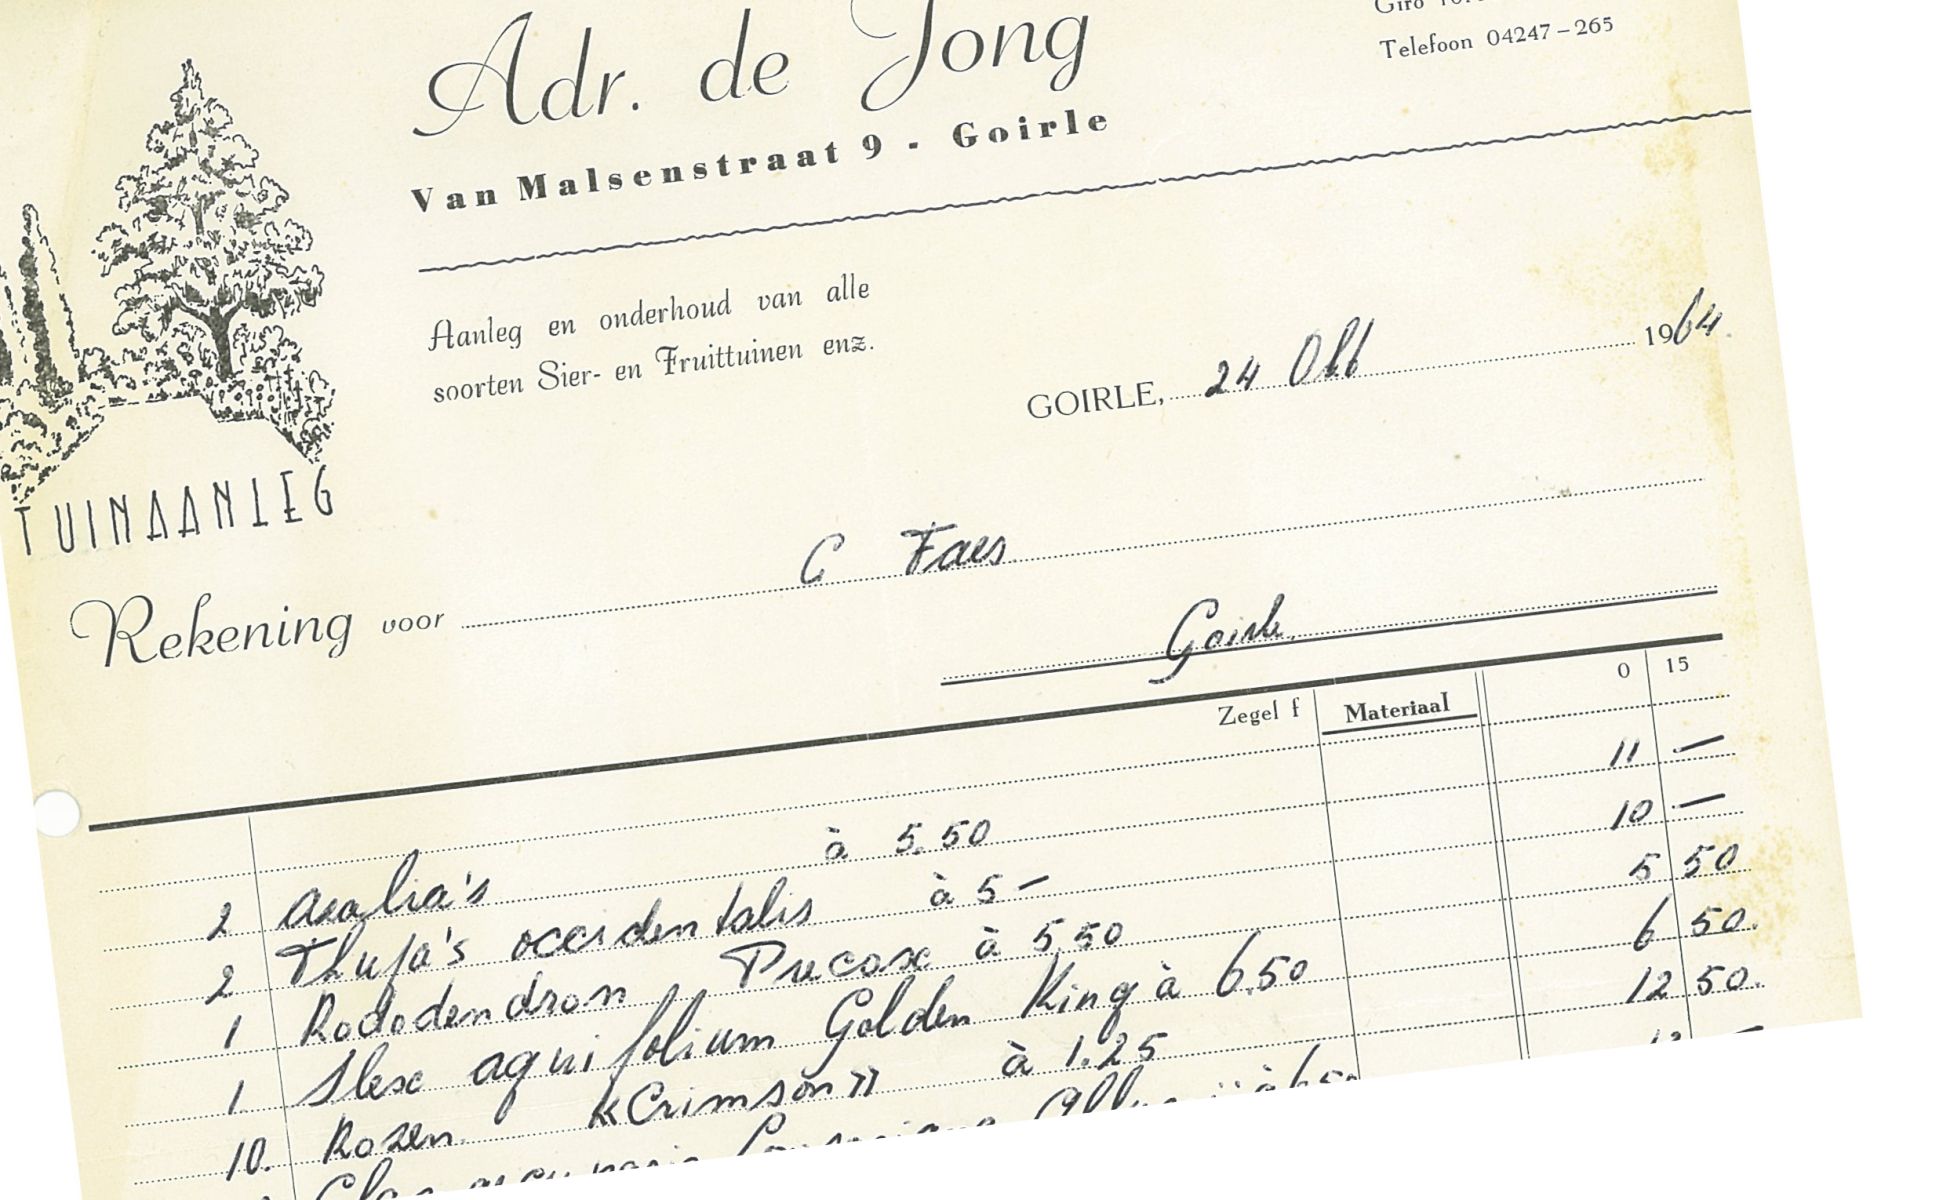 Adr. de Jong
Giro
Telefoon 04247-265
Van Malsenstraat 9 - Goirle
Aanleg en onderhoud van alle
soorten Sier- en Fruittuinen enz.
GOIRLE, 24 Okt 1964.
TUINAANLEG
Rekening voor C Faes
Goirle
Zegel f Materiaal 0 15
2 Azalia's à 5.50 11 —
2 Thuja's occidentalis à 5 — 10 —
1 Rododendron Precox à 5.50 5 50
1. Ilex aquifolium Golden King à 6.50 6 50.
10. Rozen «Crimson» à 1.25 12 50.